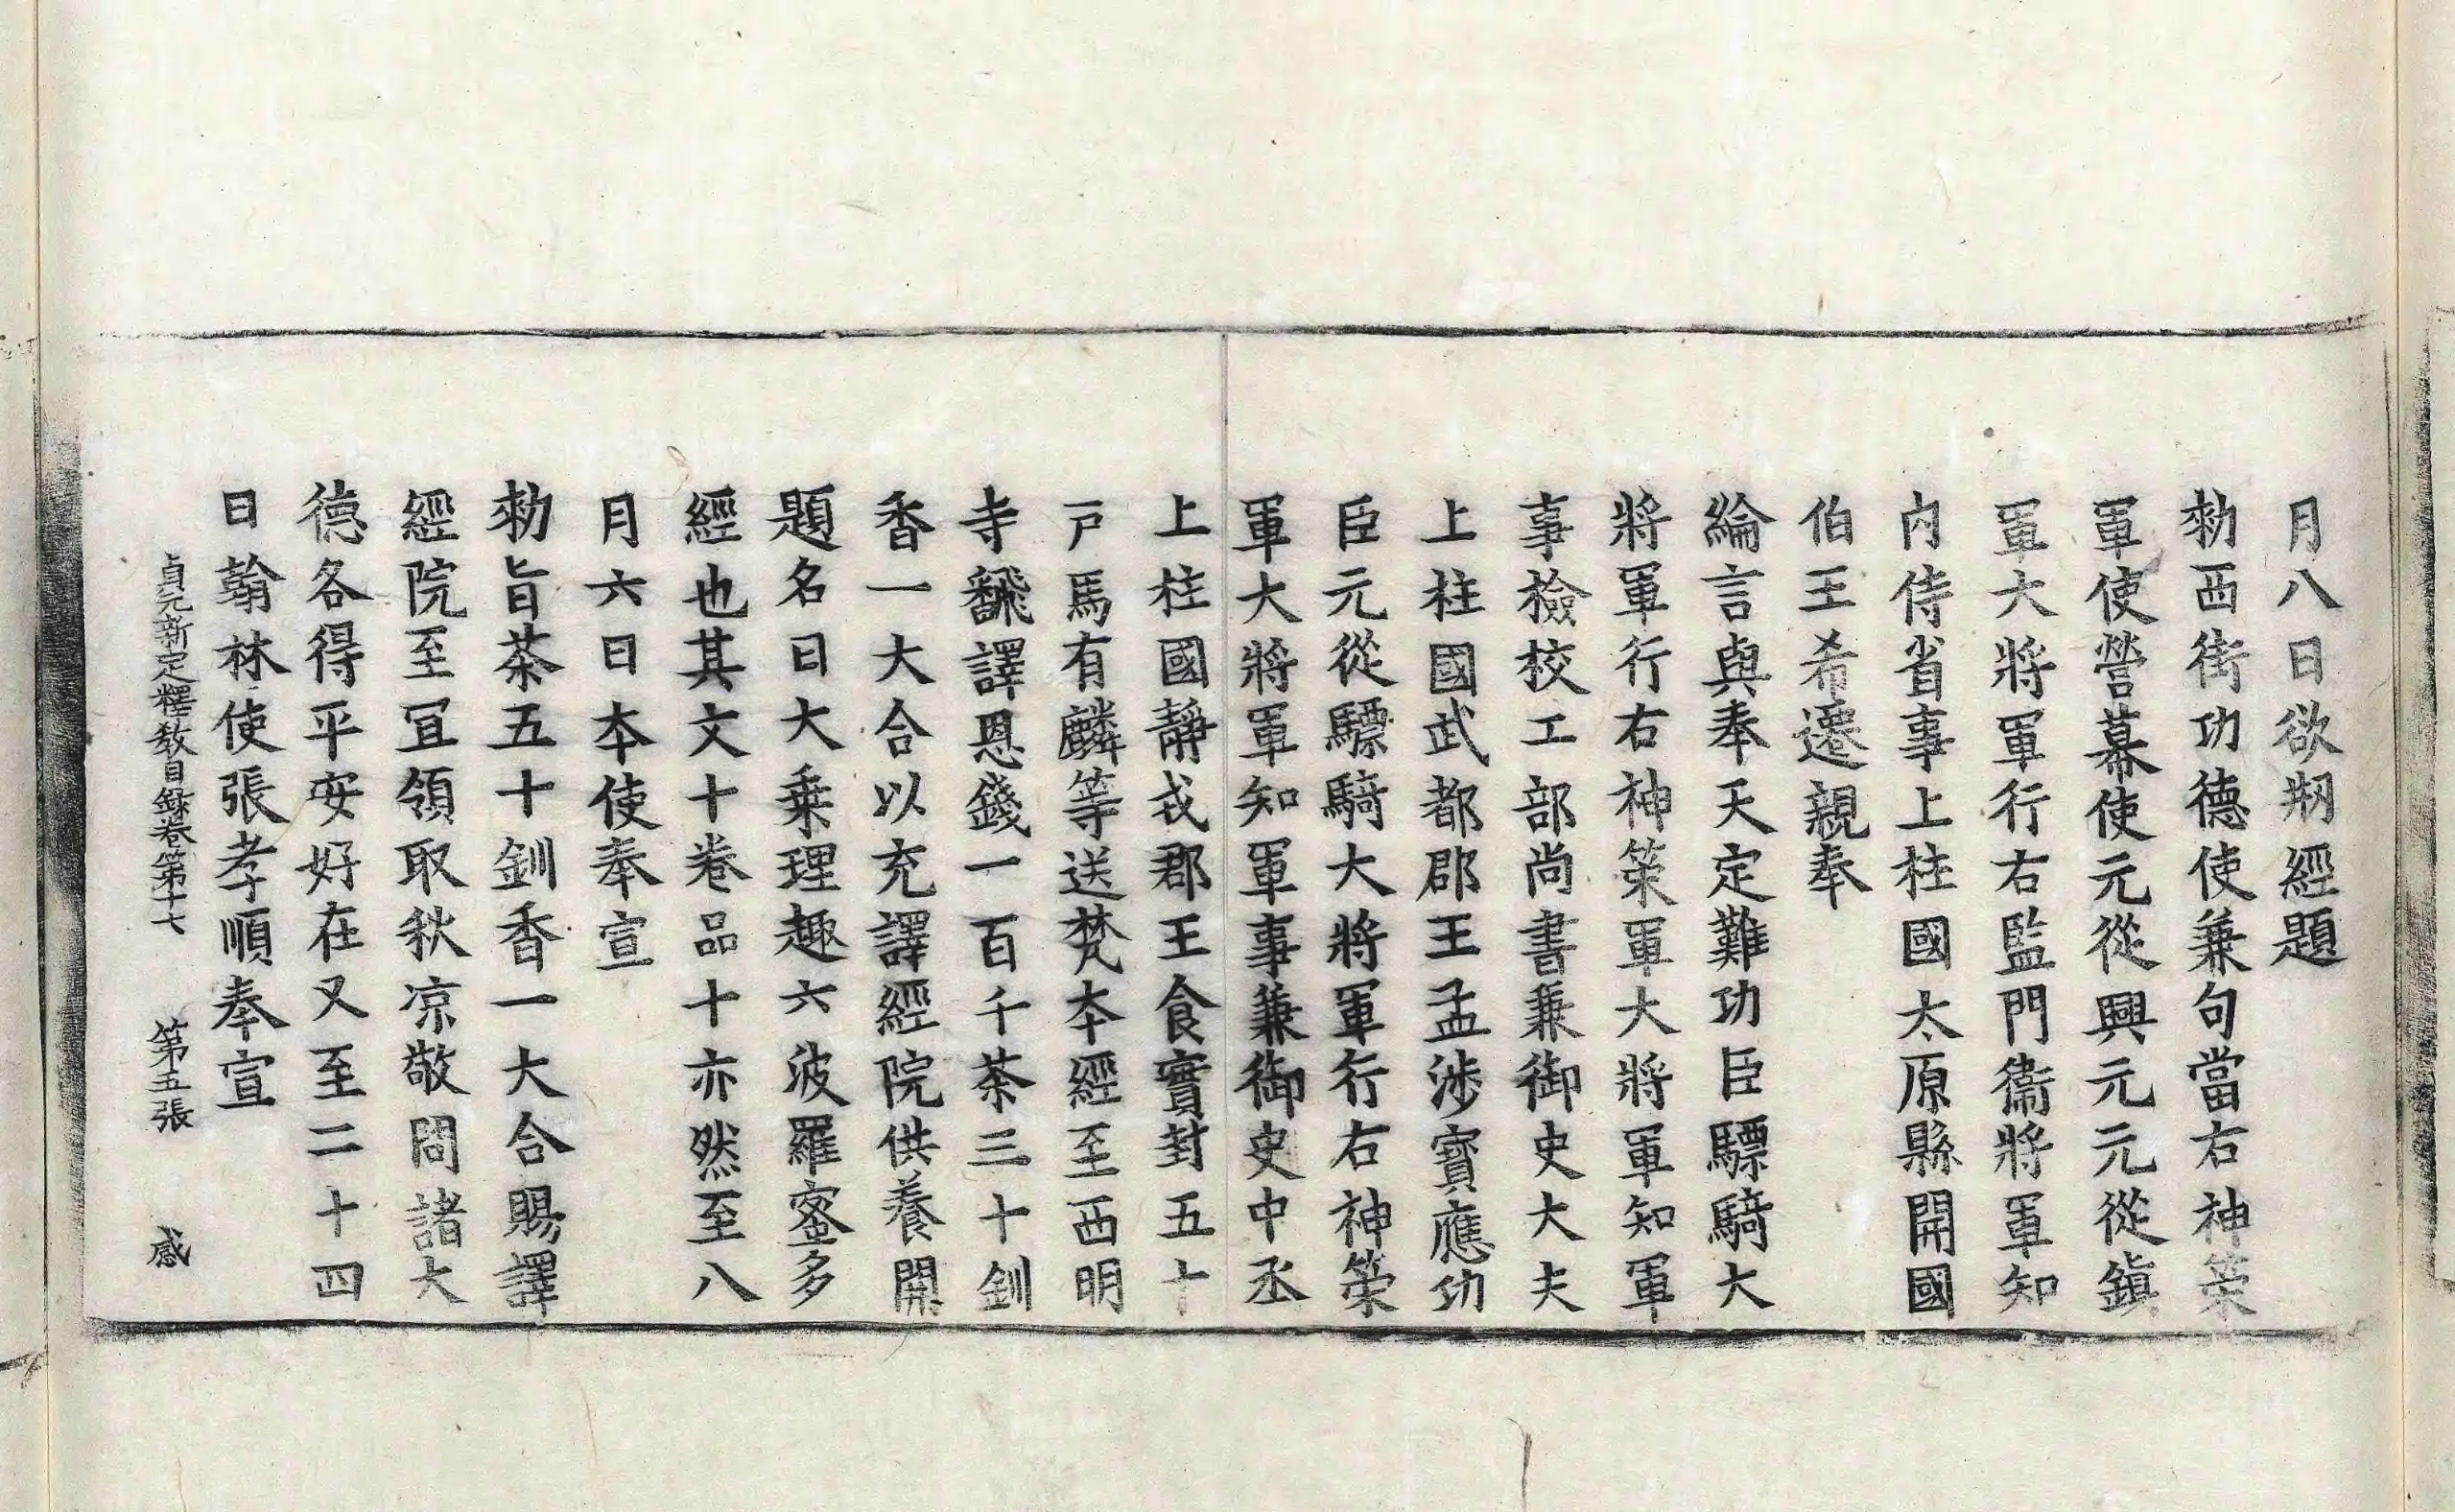 月八日欲剏經題
勑西街功德使兼句當右神筞
軍使營幕使元從興元元從鎭
軍大將軍行右監門衞將軍知
內侍省事上柱國太原縣開國
伯王希遷親奉
綸言與奉天定難功臣驃騎大
將軍行右神筞軍大將軍知軍
事檢校工部尚書兼御史大夫
上柱國武都郡王孟涉寶應功
臣元從驃騎大將軍行右神筞
軍大將軍知軍事兼御史中丞
上柱國靜戎郡王食實封五十
戸馬有麟等送梵夲經至西明
寺飜譯恩錢一百千茶三十釧
香一大合以充譯經院供養開
題名曰大乗理趣六波羅蜜多
經也其文十卷品十亦然至八
月六日夲使奉宣
勑旨茶五十釧香一大合賜譯
經院至冝領取秋凉敬問諸大
德各得平安好在又至二十四
日翰林使張孝順奉宣
貞元新定釋教目錄卷第十七 第五張 感